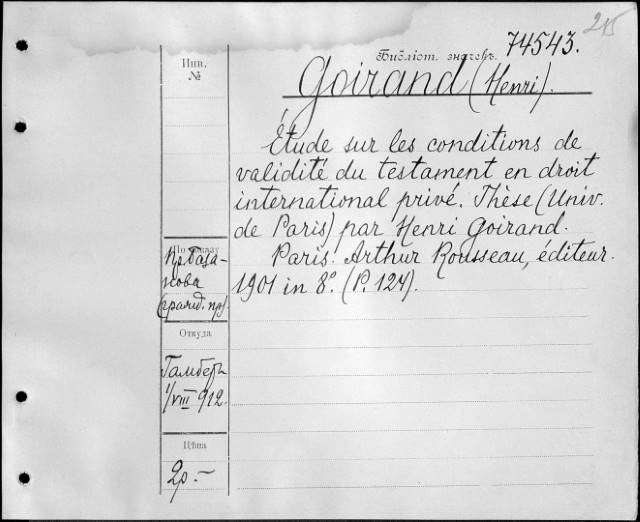 215
Библіот. значекъ. 74543.
Goirand (Henri).
Étude sur les conditions de
validité du testament en droit
international privé. Thèse (Univ.
de Paris) par Henri Goirand.
Paris. Arthur Rousseau, éditeur.
1901 in 8°. (P. 124).
Инв.
№
По заказу
Пр. База-
нова
(гражд. пр.)
Откуда
Гамберъ
1/VIII 912.
Цѣна
2р. —